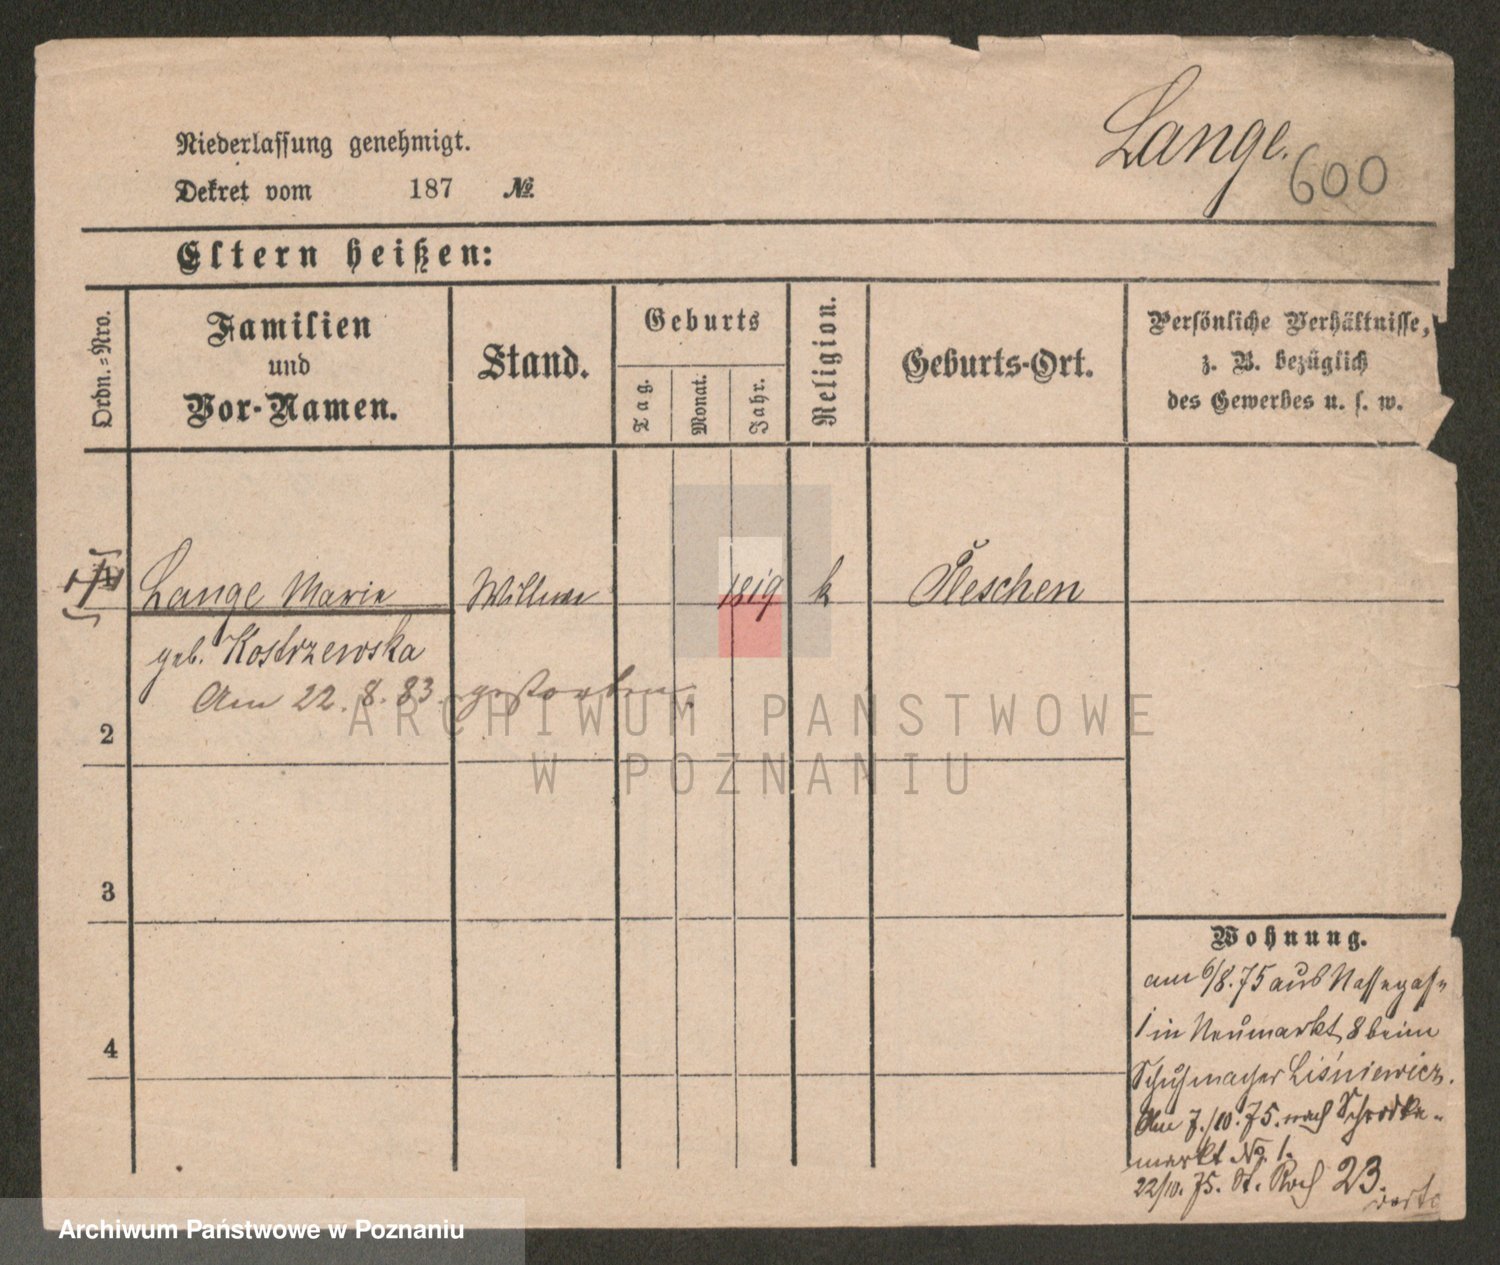 Lange.
600
Niederlassung genehmigt.
Dekret vom 187 №.
Eltern heißen:
Ordn.=Nro.
Familien
und
Vor-Namen.
Stand.
Geburts
Tag.
Monat.
Jahr.
Religion.
Geburts-Ort.
Persönliche Verhältnisse,
z. B. bezüglich
des Gewerbes u. s. w.
Lange Marie Wittwe 1819 k Pleschen
geb. Kostrzewska
Am 22. 8. 83. gestorben.
2
3
4
Wohnung.
am 6/8. 75 aus Nassegasse
1 in Neumarkt 8 beim
Schuhmacher Liśniewicz.
Am 7./10. 75. nach Schrodka-
markt No. 1.
22/10. 75. St. Roch 23.
ARCHIWUM PAŃSTWOWE
W POZNANIU
Archiwum Państwowe w Poznaniu